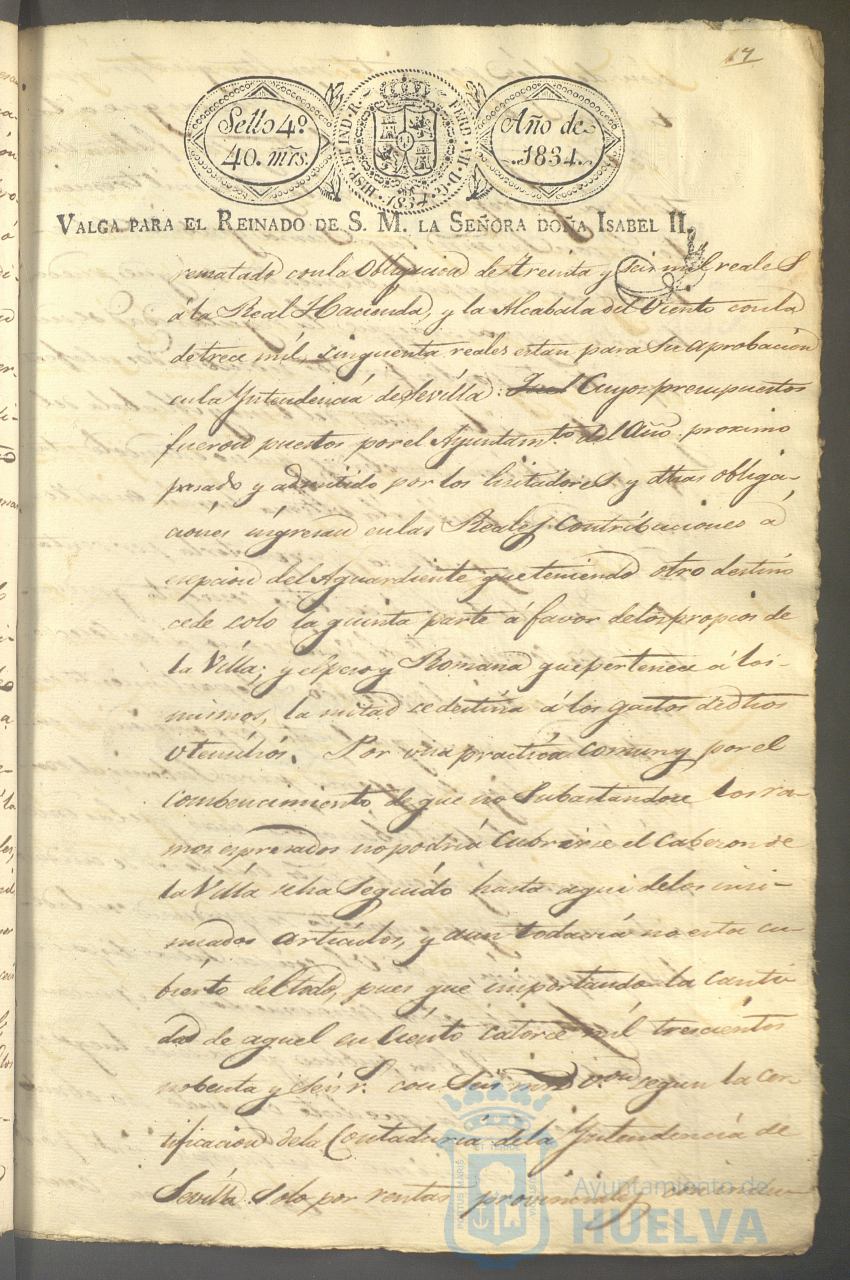 17
Sello 4º
40. mrs.
HISP. ET IND. R. FERD. VII. D. G.
1834
Año de
1834.
VALGA PARA EL REINADO DE S. M. LA SEÑORA DOÑA ISABEL II.
rematado con la obligacion de treinta y seis mil reales
á la Real Hacienda, y la Alcabala del Viento con la
de trece mil, cinquenta reales estan para su aprobacion
en la Yntendencia de Sevilla: Cuyos presupuestos
fueron puestos por el Ayuntamto. del Año proximo
pasado y admitido por los licitadores y otras obliga-
ciónes ingresan en las Reales Contribaciones á
epcion del Aguardiente que teniendo otro destino
cede solo la quinta parte á favor de los propios de
la Villa; y el peso y Romana que pertenece á los
mismos, la mitad se destina á los gastos de dhos
Utensilios. Por una practica comun y por el
combencimiento de que no Subastandose los ra-
mos espresados no podria Cubrirse el Cabezon de
la Villa se ha Seguido hasta aqui de los insi-
nuados articulos, y aun todavia no esta cu-
bierto del todo, pues que importando la canti-
dad de aquel en Ciento catorce mil trescientos
nobenta y seis r. con Seis mrs von segun la cer
tificacion de la Contaduria de la Yntendencia de
Sevilla solo por rentas provinciales, sin inclu-
Ayuntamiento de
HUELVA